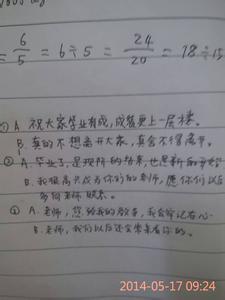 = 6/5 = 6÷5 = 24/20 = 18÷15
① A. 祝大家学业有成,成绩更上一层楼。
B. 真的不想离开大家,真舍不得离开。
② A. 毕业了,是现阶段的结束,也是新的开始
B. 我很高兴成为你们的老师,愿你们以后
多向老师联系。
③ A. 老师,您给我的教育,我会铭记在心
B. 老师,我们以后还会常来看你的。
2014-05-17 09:24